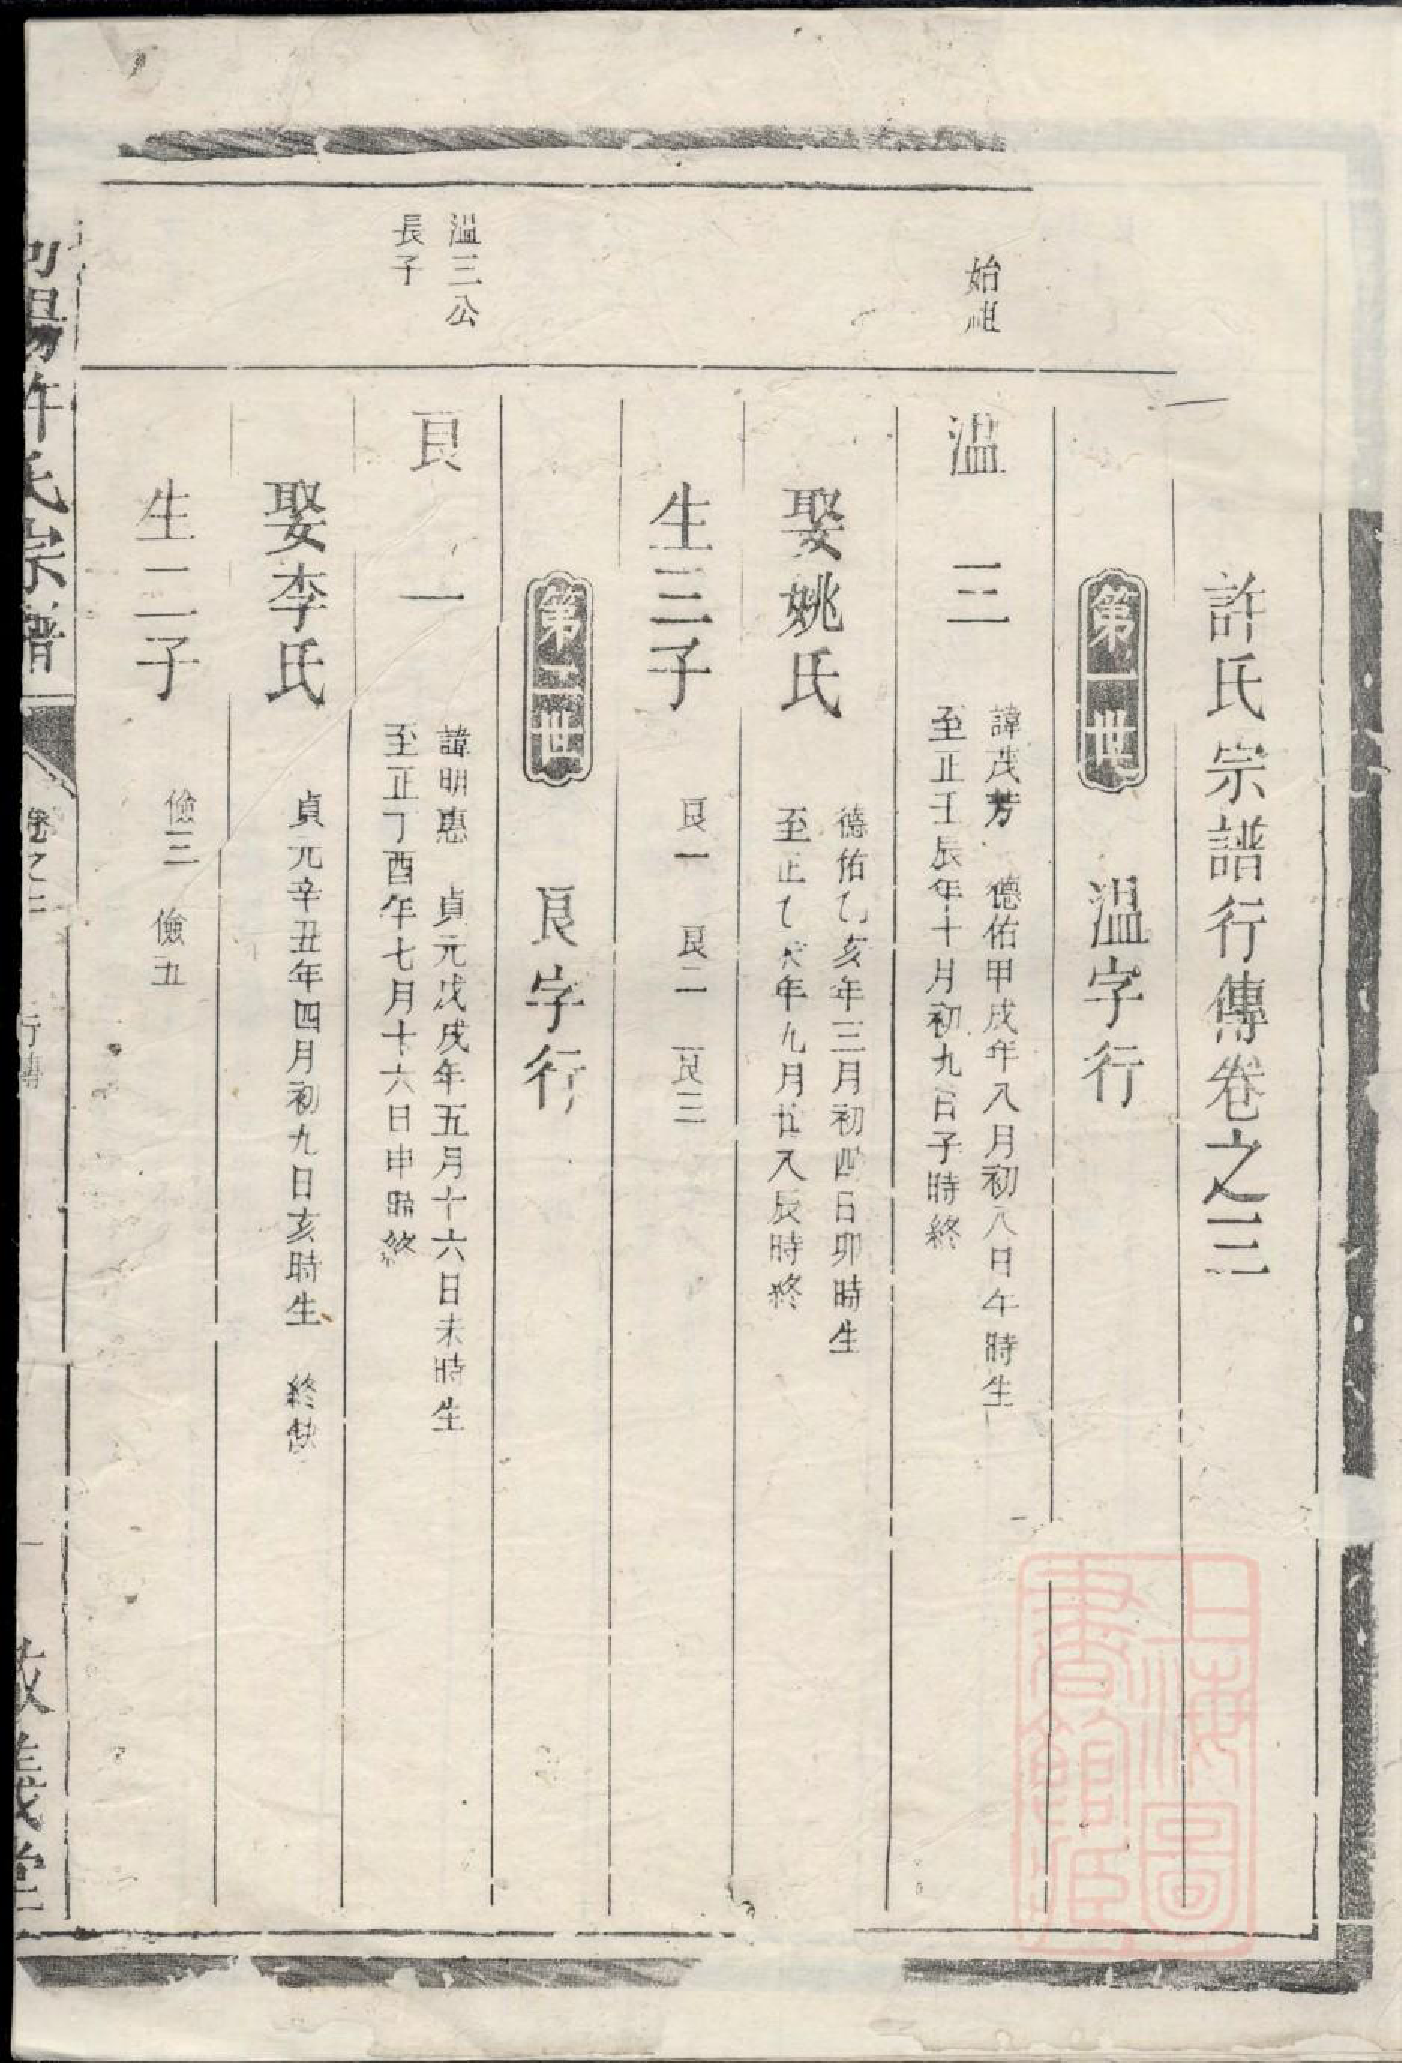 許氏宗譜行傳卷之三
第一世 溫字行
始祖
溫三
諱茂芳 德佑甲戌年八月初八日午時生
至正壬辰年十月初九日子時終
娶姚氏
德佑乙亥年三月初四日卯時生
至正乙未年九月廿八辰時終
生三子
良一 良二 良三
第二世 良字行
溫三公
長子
良一
諱明惠 貞元戊戌年五月十六日未時生
至正丁酉年七月十六日申時終
娶李氏
貞元辛丑年四月初九日亥時生 終缺
生二子
儉三 儉五
瀏陽許氏宗譜 卷之三 行傳 一 敦義堂
上海圖書館藏